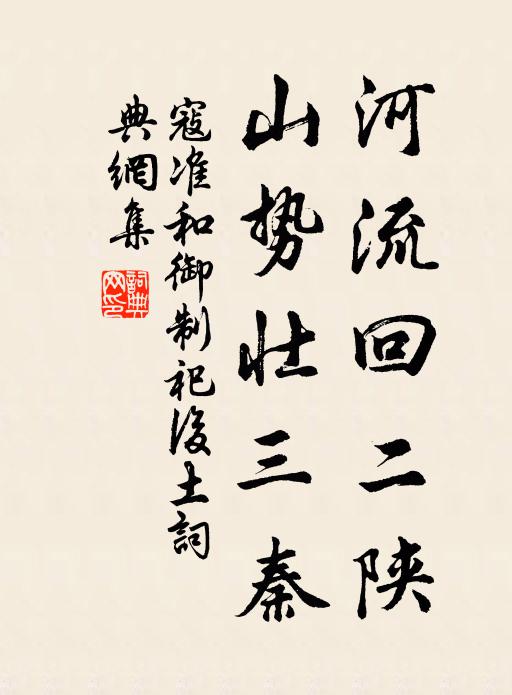 河流回二陕
山势壮三秦
寇准和御制祀後土詞
典網集
詞典網印